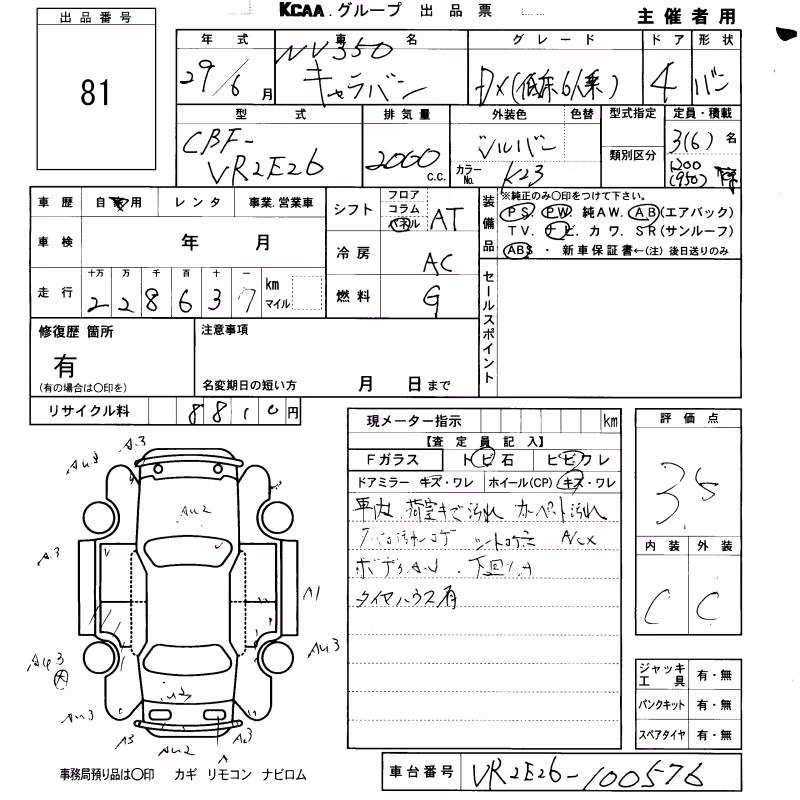 KCAA.グループ 出品票
主催者用
出品番号
81
年式 車名 グレード ドア 形状
29/6月 NV350 キャラバン DX(低床6人乗) 4 バン
型式 排気量 外装色 色替 型式指定 定員・積載
CBF-VR2E26 2000 c.c. シルバー 3(6)名
カラーNo. K23 類別区分 1200 (950)
車歴 自家用 レンタ 事業.営業車
シフト フロア コラム パネル AT
装備品 ※純正のみ〇印をつけて下さい。
PS. PW. 純AW. AB(エアバック)
TV. ナビ. カワ. SR(サンルーフ)
ABS・新車保証書←(注)後日送りのみ
車検 年 月
冷房 AC
走行 十万 万 千 百 十 一
228637 km マイル
燃料 G
セールスポイント
修復歴 箇所 注意事項
有
(有の場合は〇印を) 名変期日の短い方 月 日まで
リサイクル料 8810円
現メーター指示 km
評価点
【査定員記入】
Fガラス トビ石 ヒビワレ
ドアミラー キズ・ワレ ホイール(CP) キズ・ワレ
3.5
車内 荷室キズ汚れ カーペット汚れ
内装 外装
C C
タイヤハウス有
A3
AU2
A3
A1
AU3
AU3
A3
AU2
A
ジャッキ工具 有・無
パンクキット 有・無
スペアタイヤ 有・無
事務局預り品は〇印 カギ リモコン ナビロム
車台番号 VR2E26-100576